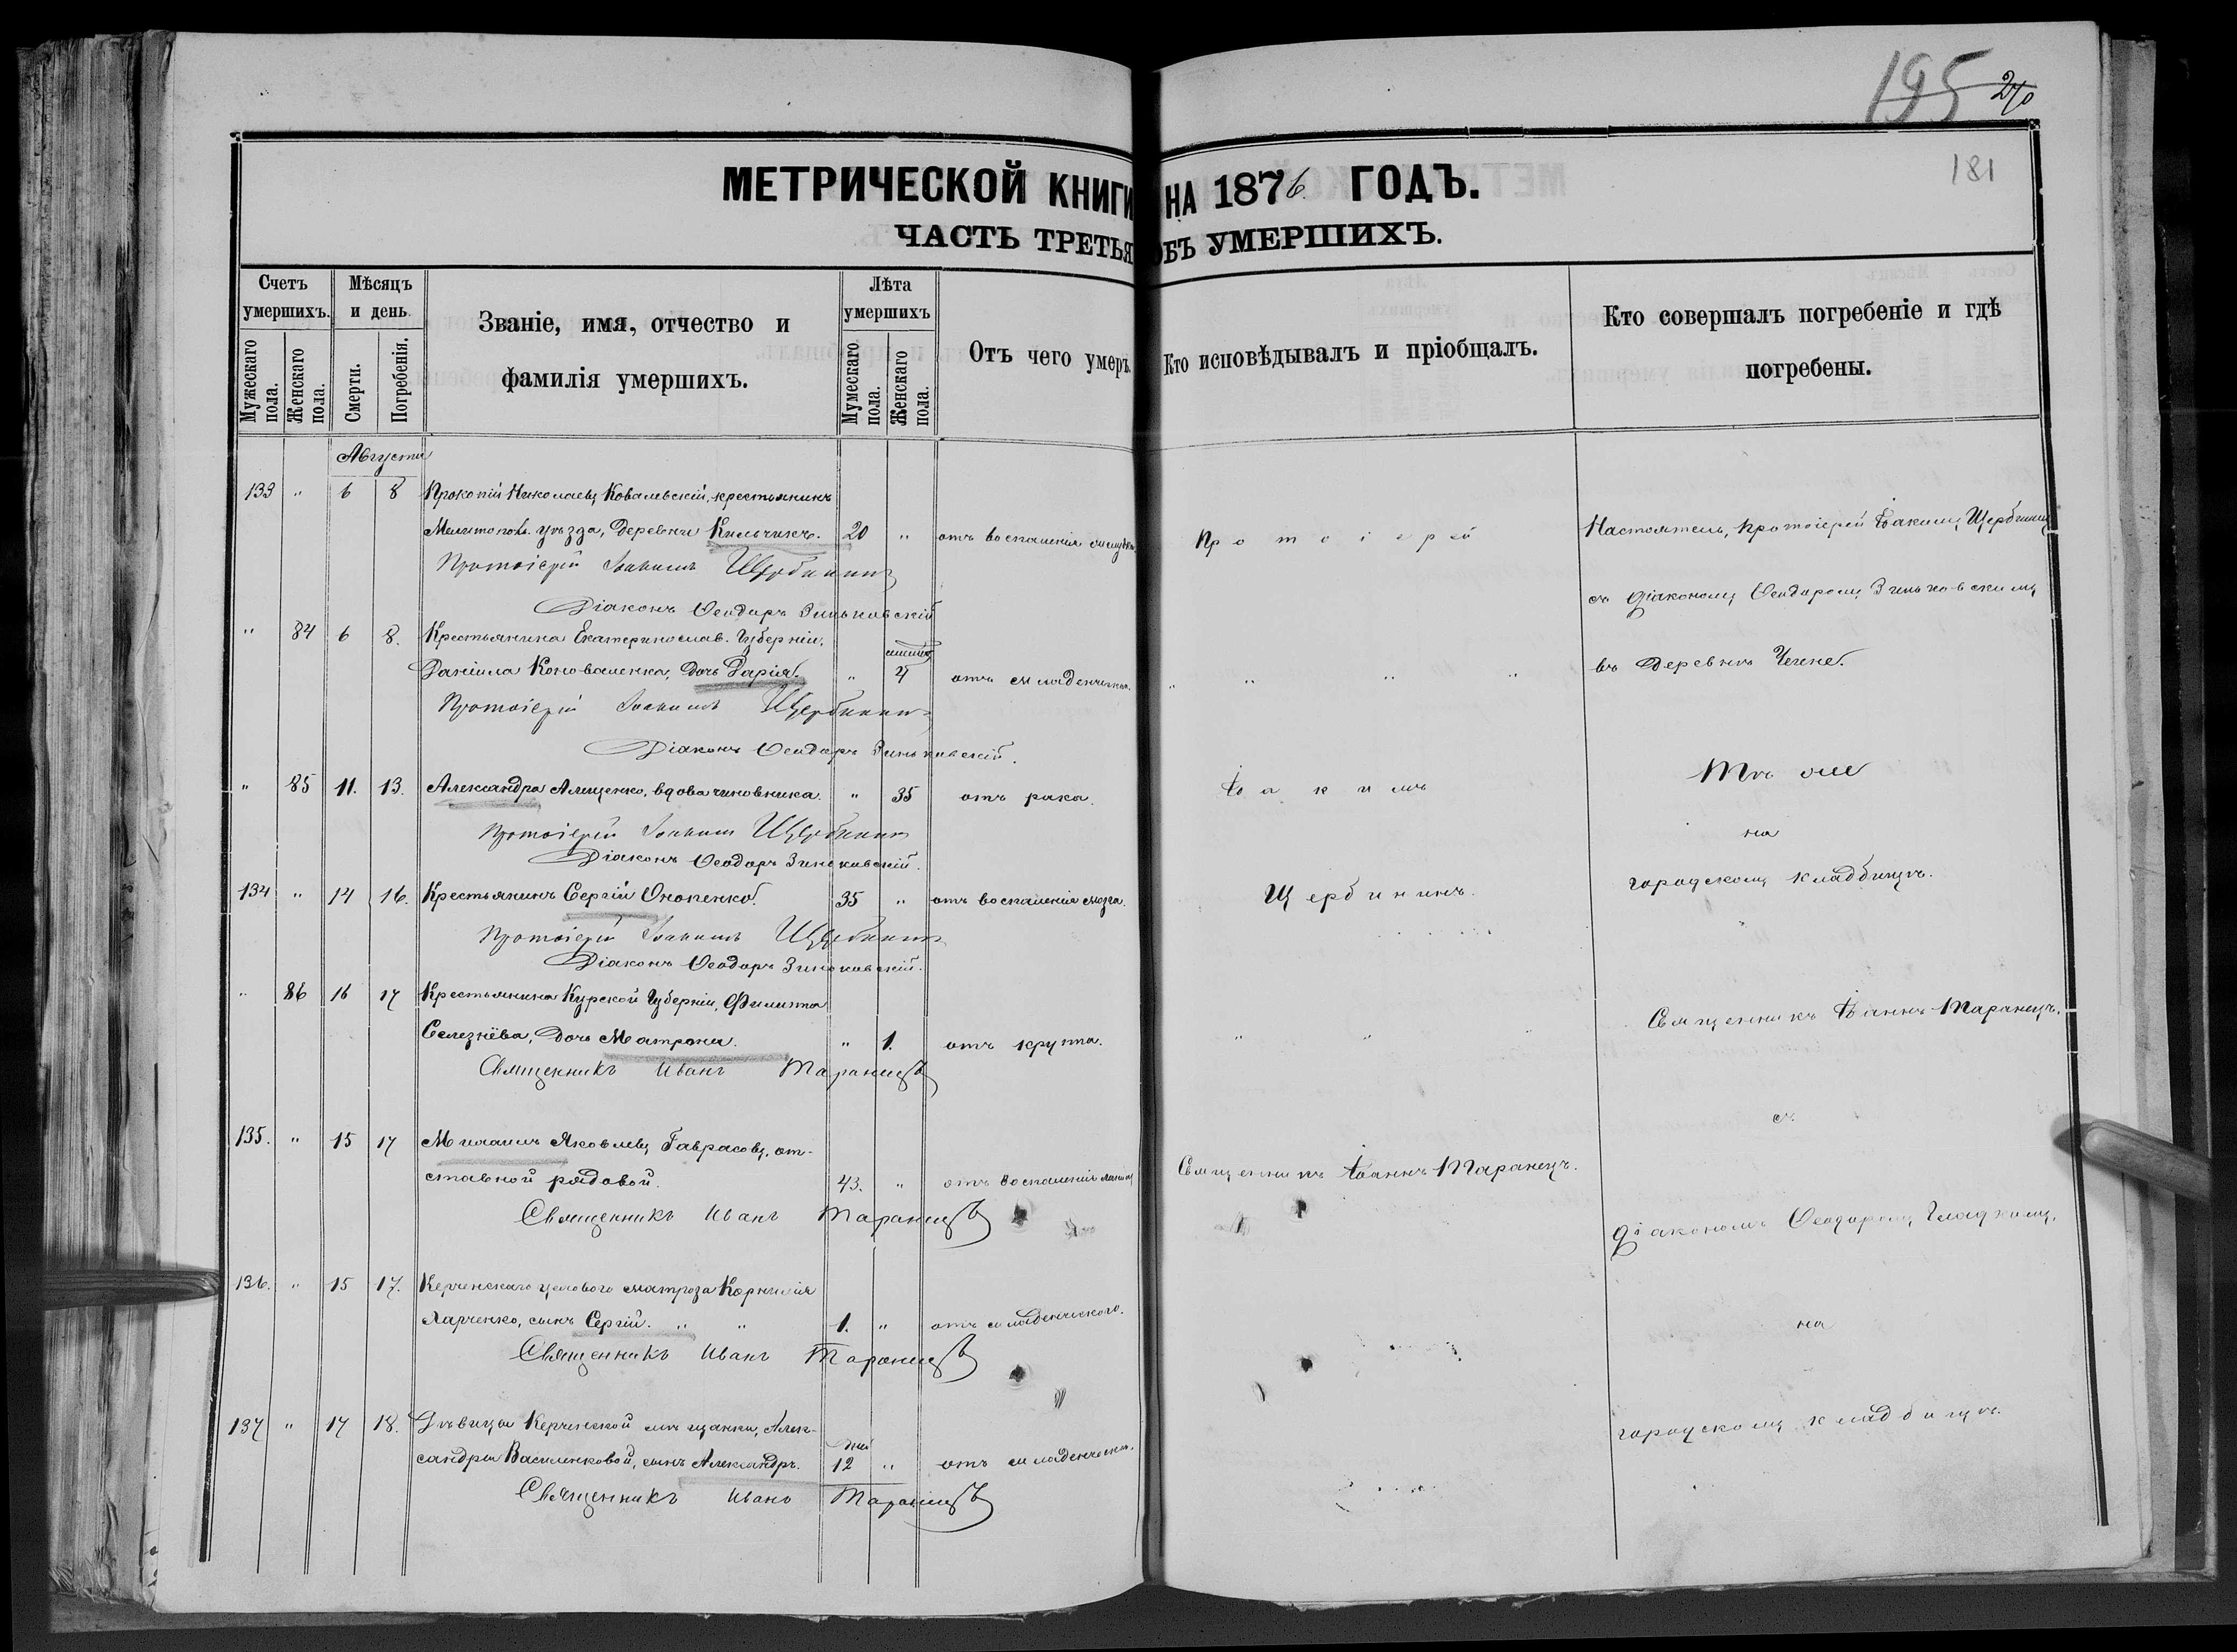 195 270
181
МЕТРИЧЕСКОЙ КНИГИ НА 1876 ГОДЪ.
ЧАСТЬ ТРЕТЬЯ ОБЪ УМЕРШИХЪ.
Счетъ умершихъ.
Мужескаго пола.
Женскаго пола.
Мѣсяцъ и день
Смерти.
Погребенія.
Званіе, имя, отчество и
фамилія умершихъ.
Лѣта умершихъ
Мужескаго пола.
Женскаго пола.
Отъ чего умеръ.
Кто исповѣдывалъ и пріобщалъ.
Кто совершалъ погребеніе и гдѣ
погребены.
Августа
133 " 6 8 Прокопій Николаевъ Ковалевскій, крестьянинъ
Мелитопол. уѣзда, деревни 20 " отъ воспаленія
Протоіерей Іоакимъ Щербининъ
Діаконъ Ѳеодоръ Зиньковскій
" 84 6 8. Крестьянина Екатеринослав. Губерніи,
Даніила Коноваленка, дочь Дарія. " 4 отъ младенческ.
Протоіерей Іоакимъ Щербининъ
Діаконъ Ѳеодоръ Зиньковскій.
" 85 11. 13. Александра Алещенко, вдова чиновника. " 35 отъ рака.
Протоіерей Іоакимъ Щербининъ
Діаконъ Ѳеодоръ Зиньковскій.
134 " 14 16. Крестьянинъ Сергій Онопенко. 35 " отъ воспаленія мозга.
Протоіерей Іоакимъ Щербининъ
Діаконъ Ѳеодоръ Зиньковскій.
" 86 16 17 Крестьянина Курской Губерніи, Филиппа
Селезнёва, дочь Матрона. " 1. отъ крупа.
Священникъ Иванъ Таранецъ
135. " 15 17 Михаилъ Яковлевъ Гаврасовъ, от-
ставной рядовой. 43. " отъ воспаленія
Священникъ Иванъ Таранецъ
136. " 15 17. Керченскаго цехового матроза Корнилія
Харченко, сынъ Сергій. " " 1. " отъ младенческаго.
Священникъ Иванъ Таранецъ
137 " 17 18. Дѣвицы Керченской мѣщанки, Алек-
сандры Василенковой, сынъ Александръ. дней 12 " отъ младенческ.
Священникъ Иванъ Таранецъ
Протоіерей
" " " "
Іоакимъ
Щербининъ.
" " "
Священникъ Іоаннъ Таранецъ.
Настоятель, Протоіерей Іоакимъ Щербининъ
съ діакономъ Ѳеодоромъ Зиньковскимъ
въ деревнѣ
Тѣ же
на
городскомъ кладбищѣ.
Священникъ Іоаннъ Таранецъ,
съ
діакономъ Ѳеодоромъ Гладкимъ,
на
городскомъ кладбищѣ.